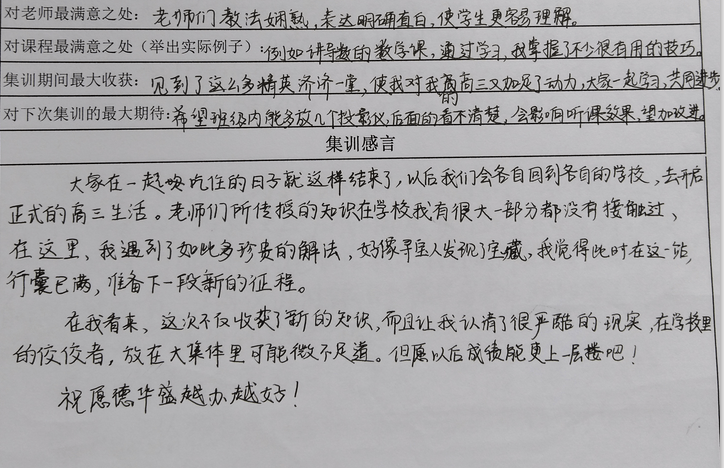 对老师最满意之处：老师们教法娴熟，表达明确直白，使学生更容易理解。
对课程最满意之处（举出实际例子）：例如讲导数的数学课，通过学习，我掌握了不少很有用的技巧。
集训期间最大收获：见到了这么多精英济济一堂，使我对我的高三又加足了动力，大家一起学习，共同进步。
对下次集训的最大期待：希望班级内能多放几个投影仪，后面的看不清楚，会影响听课效果，望加改进。
集训感言
大家在一起吃住的日子就这样结束了，以后我们会各自回到各自的学校，去开启
正式的高三生活。老师们所传授的知识在学校我有很大一部分都没有接触过、
在这里、我遇到了如此多珍贵的解法，好像寻宝人发现了宝藏，我觉得此时在这一站，
行囊已满，准备下一段新的征程。
在我看来、这次不仅收获了新的知识，而且让我认清了很严酷的现实，在学校里
的佼佼者，放在大集体里可能微不足道。但愿以后成绩能更上一层楼吧！
祝愿德华盛越办越好！